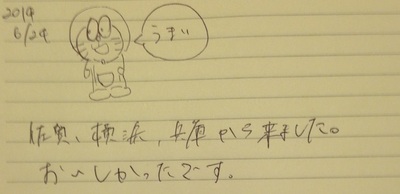 2019
6/29
うまい
佐賀、横浜、兵庫から来ました。
おいしかったです。